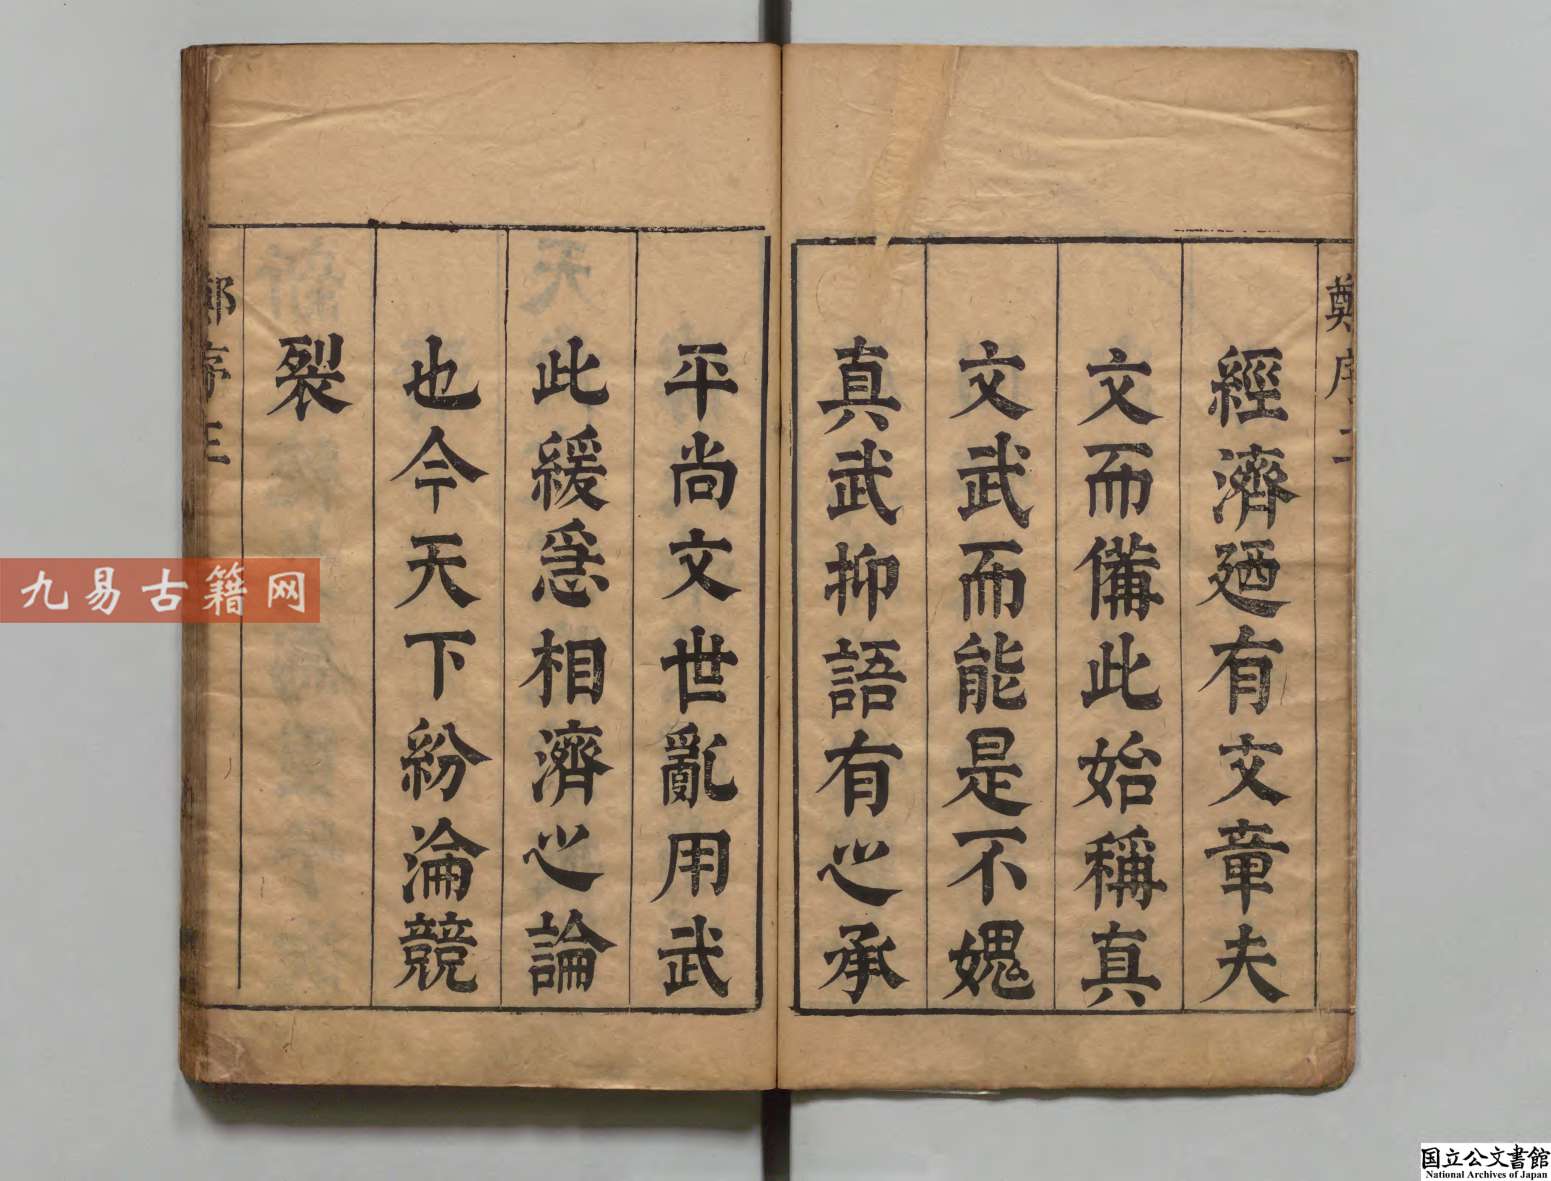 鄭序二
經濟廼有文章夫
文而備此始稱真
文武而能是不媿
真武抑語有之承
平尚文世亂用武
此緩急相濟之論
也今天下紛淪競
裂
鄭序三
九易古籍网
国立公文書館
National Archives of Japan